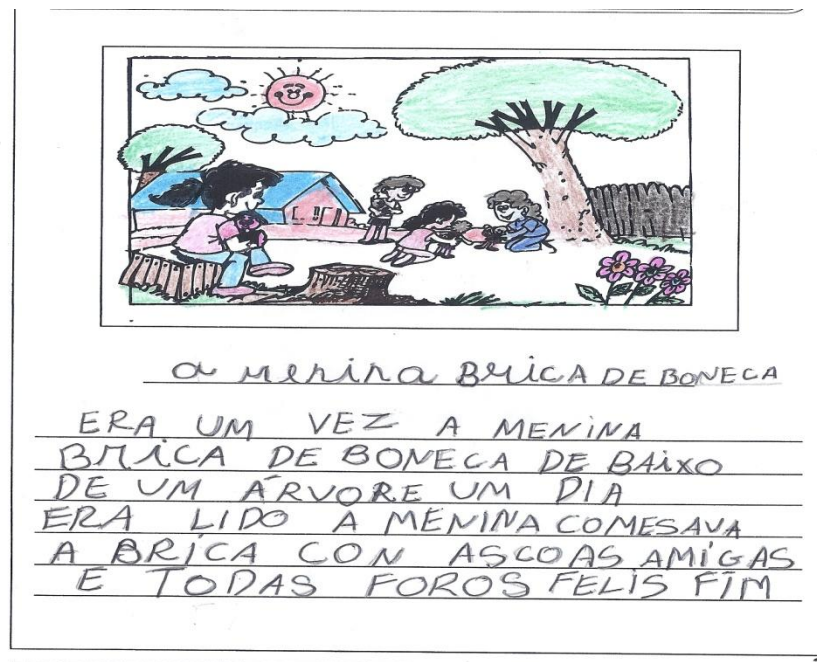 a menina BRICA DE BONECA
ERA UM VEZ A MENINA
BRICA DE BONECA DE BAIXO
DE UM ÁRVORE UM DIA
ERA LIDO A MENINA COMESAVA
A BRICA CON ASCOAS AMIGAS
E TODAS FOROS FELIS FIM